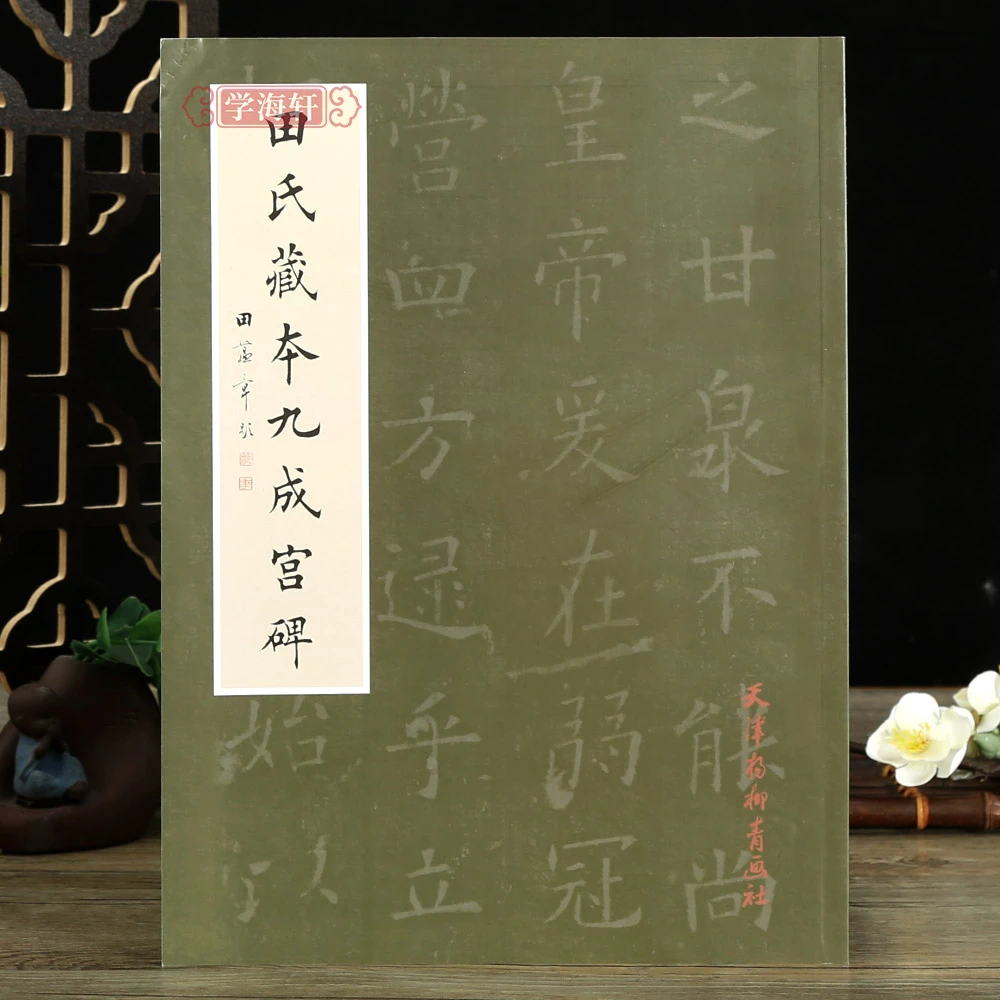 学海轩
田氏藏本九成宫碑
田蕴章题
之甘泉不能尚
皇帝爰在弱冠
营
方逯乎立
始以
天津杨柳青画社